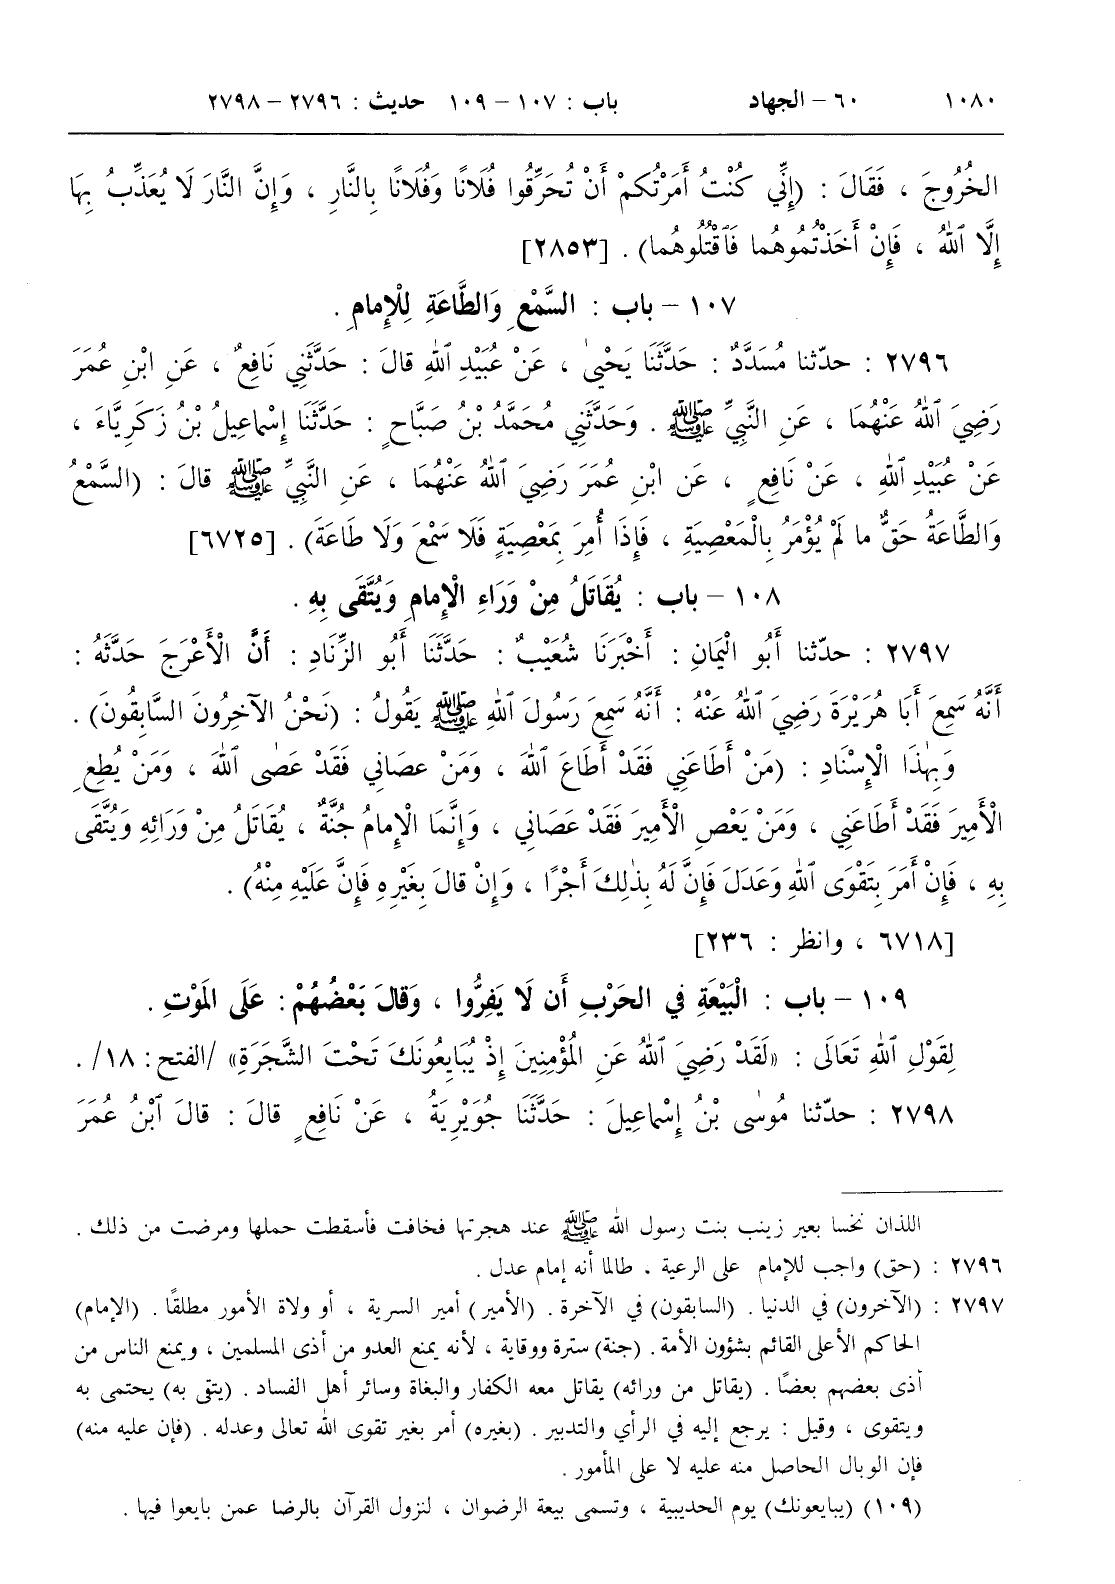 ١٠٨٠ ٦٠ - الجهاد باب : ١٠٧ - ١٠٩ حديث : ٢٧٩٦ - ٢٧٩٨
الخُرُوجَ ، فَقَالَ : (إِنِّي كُنْتُ أَمَرْتُكمْ أَنْ تُحَرِّقُوا فُلَانًا وَفُلَانًا بِالنَّارِ ، وَإِنَّ النَّارَ لَا يُعَذِّبُ بِهَا
إِلَّا ٱللهُ ، فَإِنْ أَخَذْتُمُوهُما فَٱقْتُلُوهُما) . [٢٨٥٣]
١٠٧ - باب : السَّمْعِ وَالطَّاعَةِ لِلْإِمامِ .
٢٧٩٦ : حدّثنا مُسَدَّدٌ : حَدَّثَنَا يَحْيىٰ ، عَنْ عُبَيْدِ ٱللهِ قالَ : حَدَّثَنِي نَافِعٌ ، عَنِ ابْنِ عُمَرَ
رَضِيَ ٱللهُ عَنْهُمَا ، عَنِ النَّبِيِّ ﷺ . وَحَدَّثَنِي مُحَمَّدُ بْنُ صَبَّاحٍ : حَدَّثَنَا إِسْماعِيلُ بْنُ زَكَرِيَّاءَ ،
عَنْ عُبَيْدِ ٱللهِ ، عَنْ نَافِعٍ ، عَن ابْنِ عُمَرَ رَضِيَ ٱللهُ عَنْهُمَا ، عَنِ النَّبِيِّ ﷺ قالَ : (السَّمْعُ
وَالطَّاعَةُ حَقٌّ ما لَمْ يُؤْمَرْ بِالْمَعْصِيَةِ ، فَإِذَا أُمِرَ بِمَعْصِيَةٍ فَلَا سَمْعَ وَلَا طَاعَةَ) . [٦٧٢٥]
١٠٨ - باب : يُقَاتَلُ مِنْ وَرَاءِ الْإِمامِ وَيُتَّقَى بِهِ .
٢٧٩٧ : حدّثنا أَبُو الْيَمَانِ : أَخْبَرَنَا شُعَيْبٌ : حَدَّثَنَا أَبُو الزِّنَادِ : أَنَّ الْأَعْرَجَ حَدَّثَهُ :
أَنَّهُ سَمِعَ أَبَا هُرَيْرَةَ رَضِيَ ٱللهُ عَنْهُ : أَنَّهُ سَمِعَ رَسُولَ ٱللهِ ﷺ يَقُولُ : (نَحْنُ الآخِرُونَ السَّابِقُونَ) .
وَبِهٰذَا الْإِسْنَادِ : (مَنْ أَطَاعَنِي فَقَدْ أَطَاعَ ٱللهَ ، وَمَنْ عصَانِي فَقَدْ عَصٰى ٱللهَ ، وَمَنْ يُطِعِ
الْأَمِيرَ فَقَدْ أَطَاعَنِي ، وَمَنْ يَعْصِ الْأَمِيرَ فَقَدْ عَصَانِي ، وَإِنَّمَا الْإِمامُ جُنَّةٌ ، يُقَاتَلُ مِنْ وَرَائِهِ وَيُتَّقَى
بِهِ ، فَإِنْ أَمَرَ بِتَقْوَى ٱللهِ وَعَدَلَ فَإِنَّ لَهُ بِذٰلِكَ أَجْرًا ، وَإِنْ قالَ بِغَيْرِهِ فَإِنَّ عَلَيْهِ مِنْهُ) .
[٦٧١٨ ، وانظر : ٢٣٦]
١٠٩ - باب : الْبَيْعَةِ فِي الحَرْبِ أَن لَا يَفِرُّوا ، وَقالَ بَعْضُهُمْ : عَلَى المَوْتِ .
لِقَوْلِ ٱللهِ تَعَالَى : «لَقَدْ رَضِيَ ٱللهُ عَنِ الْمُؤْمِنِينَ إِذْ يُبَايِعُونَكَ تَحْتَ الشَّجَرَةِ» /الفتح: ١٨/ .
٢٧٩٨ : حدّثنا مُوسٰى بْنُ إِسْماعِيلَ : حَدَّثَنَا جُوَيْرِيَةُ ، عَنْ نَافِعٍ قالَ : قالَ ٱبْنُ عُمَرَ
اللذان نخسا بعير زينب بنت رسول الله ﷺ عند هجرتها فخافت فأسقطت حملها ومرضت من ذلك .
٢٧٩٦ : (حق) واجب للإمام على الرعية ، طالما أنه إمام عدل .
٢٧٩٧ : (الآخرون) في الدنيا . (السابقون) في الآخرة . (الأمير) أمير السرية ، أو ولاة الأمور مطلقًا . (الإمام)
الحاكم الأعلى القائم بشؤون الأمة . (جنة) سترة ووقاية ، لأنه يمنع العدو من أذى المسلمين ، ويمنع الناس من
أذى بعضهم بعضًا . (يقاتل من ورائه) يقاتل معه الكفار والبغاة وسائر أهل الفساد . (يتقى به) يحتمى به
ويتقوى ، وقيل : يرجع إليه في الرأي والتدبير . (بغيره) أمر بغير تقوى الله تعالى وعدله . (فإن عليه منه)
فإن الوبال الحاصل منه عليه لا على المأمور .
(١٠٩) (يبايعونك) يوم الحديبية ، وتسمى بيعة الرضوان ، لنزول القرآن بالرضا عمن بايعوا فيها .